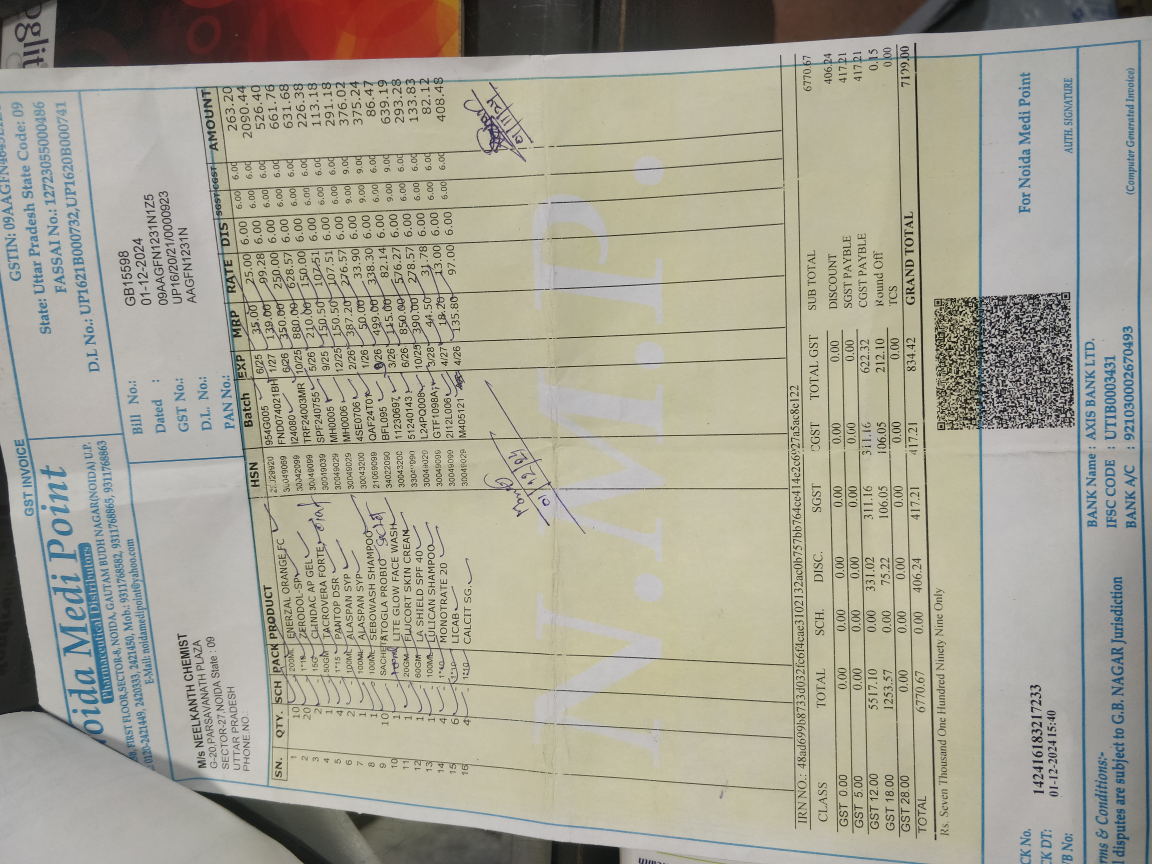 GST INVOICE
GSTIN: 09AAGFN
State: Uttar Pradesh State Code: 09
FASSAI No.: 12723055000486
D.L No.: UP1621B000732,UP1620B000741
oida Medi Point
Pharmaceutical Distributors
FIRST FLOOR,SECTOR-8, NOIDA, GAUTAM BUDH NAGAR(NOIDA) U.P.
0120-2421449, 2420333, 2421450, Mob.: 9311768582, 9311768865, 9311768863
E-Mail: noidamedipoint@yahoo.com
M/s NEELKANTH CHEMIST
G-20,PARSAVANATH PLAZA
SECTOR-27,NOIDA State : 09
UTTAR PRADESH
PHONE NO.:
Bill No.: GB15598
Dated : 01-12-2024
GST No.: 09AAGFN1231N1Z5
D.L. No.: UP16/20/21/0000923
PAN No.: AAGFN1231N
SN. QTY. SCH PACK PRODUCT HSN Batch EXP MRP RATE DIS SGST CGST AMOUNT
1 10 200ML ENERZAL ORANGE FC 954G005 6/25 35.00 25.00 6.00 6.00 6.00 263.20
2 20 ZERODOL-SP 30049069 FND074021BH 1/27 139.00 99.28 6.00 6.00 6.00 2090.44
3 2 15G CLINDAC AP GEL 30042099 I24080 6/26 350.00 250.00 6.00 6.00 6.00 526.40
4 1 50GM TACROVERA FORTE 30049099 TRF24003MR 10/25 880.00 628.57 6.00 6.00 6.00 661.76
5 4 1*15 PANTOP DSR 30049039 SPF240755 5/26 210.00 150.00 6.00 6.00 6.00 631.68
6 2 100ML ALASPAN SYP 30049029 MH0005 9/25 150.50 107.51 6.00 6.00 6.00 226.38
7 1 100ML ALASPAN SYP 30049029 MH0006 12/25 150.50 107.51 6.00 6.00 6.00 113.18
8 1 100ML SEBOWASH SHAMPOO 30043200 4SE0706 2/26 387.20 276.57 6.00 9.00 9.00 291.18
9 10 SACHET ATOGLA PROBIO 21069099 QAF24T01 1/26 50.00 33.90 6.00 9.00 9.00 376.02
10 1 LITE GLOW FACE WASH 34022090 BFL095 499.00 338.30 6.00 9.00 9.00 375.24
11 1 20GM FLUCORT SKIN CREAM 30043200 11230697 3/26 115.00 82.14 6.00 6.00 6.00 86.47
12 1 60GM LA SHIELD SPF 40 51240143 6/26 850.00 576.27 6.00 9.00 9.00 639.19
13 1 100ML FULLCAN SHAMPOO 30049020 L24PQ008 10/25 390.00 278.57 6.00 6.00 6.00 293.28
14 4 MONOTRATE 20 30049099 GTF1098A 3/28 44.50 31.78 6.00 6.00 6.00 133.83
15 6 LICAB 30049099 2112L006 4/27 18.20 13.00 6.00 6.00 6.00 82.12
16 4 CALCIT SG. 30049029 M405121 4/26 135.80 97.00 6.00 6.00 6.00 408.48
N.M.P.
CLASS TOTAL SCH. DISC. SGST CGST TOTAL GST
GST 0.00 0.00 0.00 0.00 0.00 0.00 0.00
GST 5.00 0.00 0.00 0.00 0.00 0.00 0.00
GST 12.00 5517.10 0.00 331.02 311.16 311.16 622.32
GST 18.00 1253.57 0.00 75.22 106.05 106.05 212.10
GST 28.00 0.00 0.00 0.00 0.00 0.00 0.00
TOTAL 6770.67 0.00 406.24 417.21 417.21 834.42
SUB TOTAL 6770.67
DISCOUNT 406.24
SGST PAYBLE 417.21
CGST PAYBLE 417.21
Round Off 0.15
TCS 0.00
GRAND TOTAL 7199.00
Rs. Seven Thousand One Hundred Ninety Nine Only
CK No. 142416183217233
K DT: 01-12-2024 15:40
B No:
BANK Name : AXIS BANK LTD.
IFSC CODE : UTIB0003431
BANK A/C : 921030002670493
For Noida Medi Point
AUTH. SIGNATURE
rms & Conditions:-
disputes are subject to G.B. NAGAR Jurisdiction
(Computer Generated Invoice)